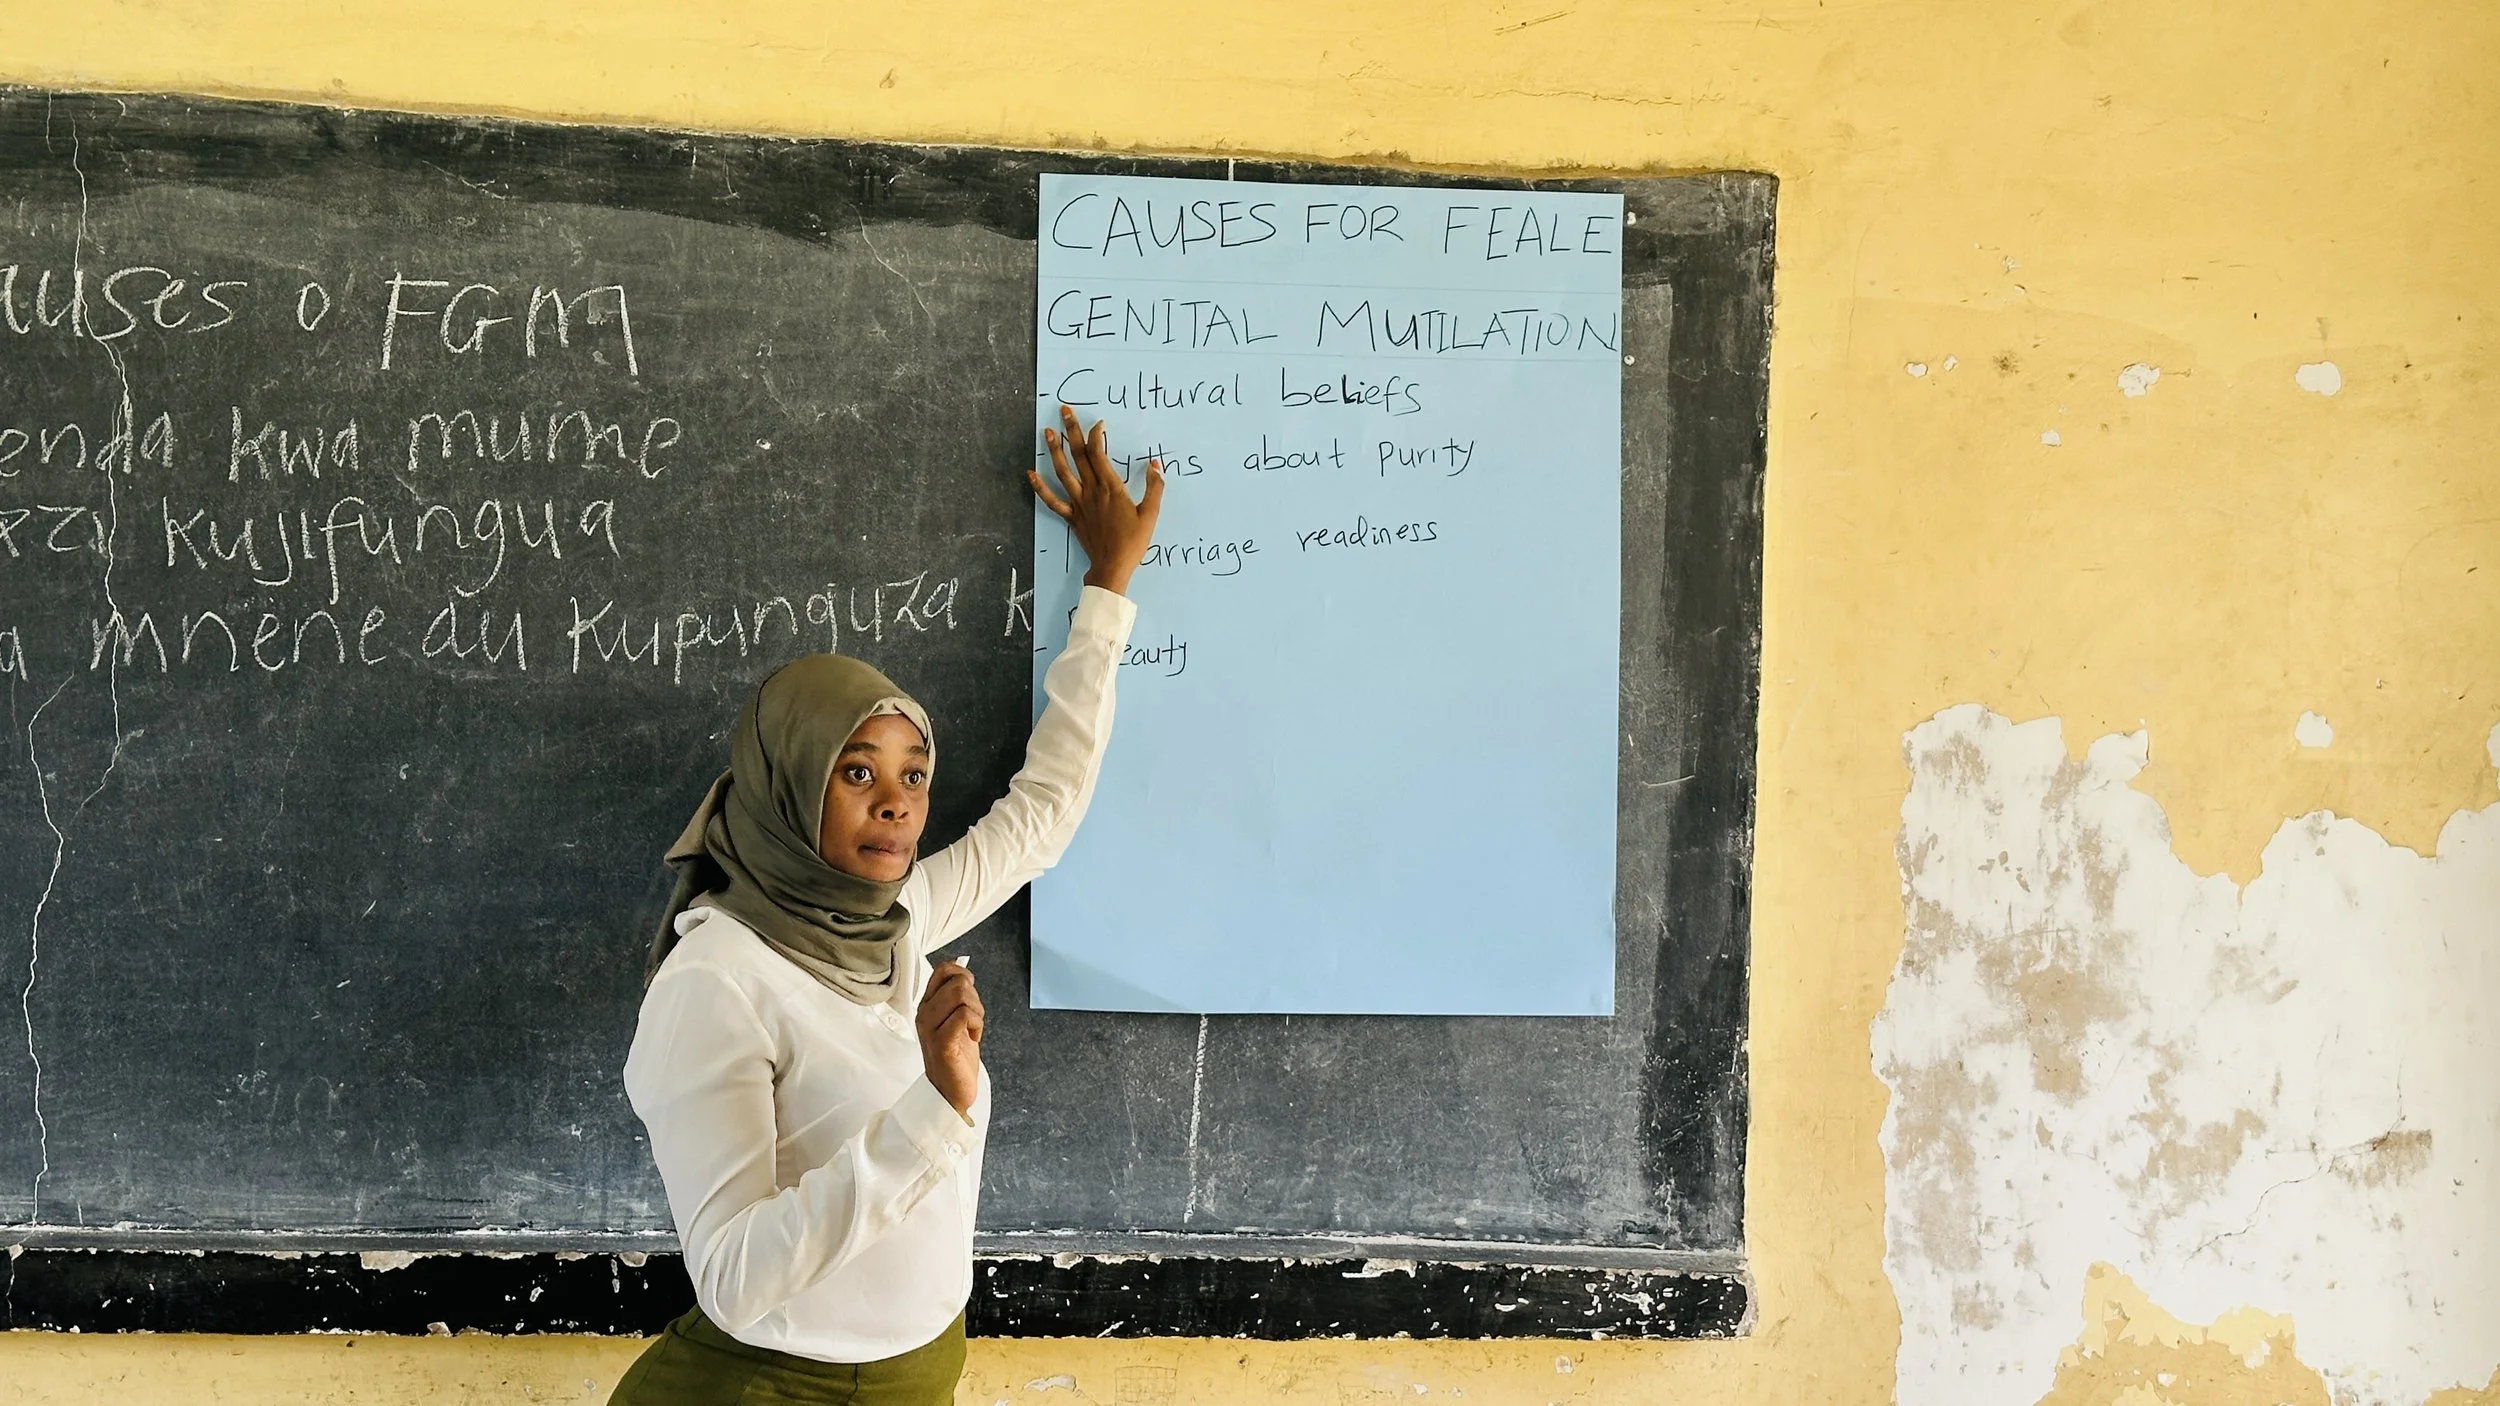 auses o FGM
enda kwa mume
kujifungua
a mnene au kupunguza k
CAUSES FOR FEALE
GENITAL MUTILATION
- Cultural beliefs
- Myths about purity
- Marriage readiness
- eauty